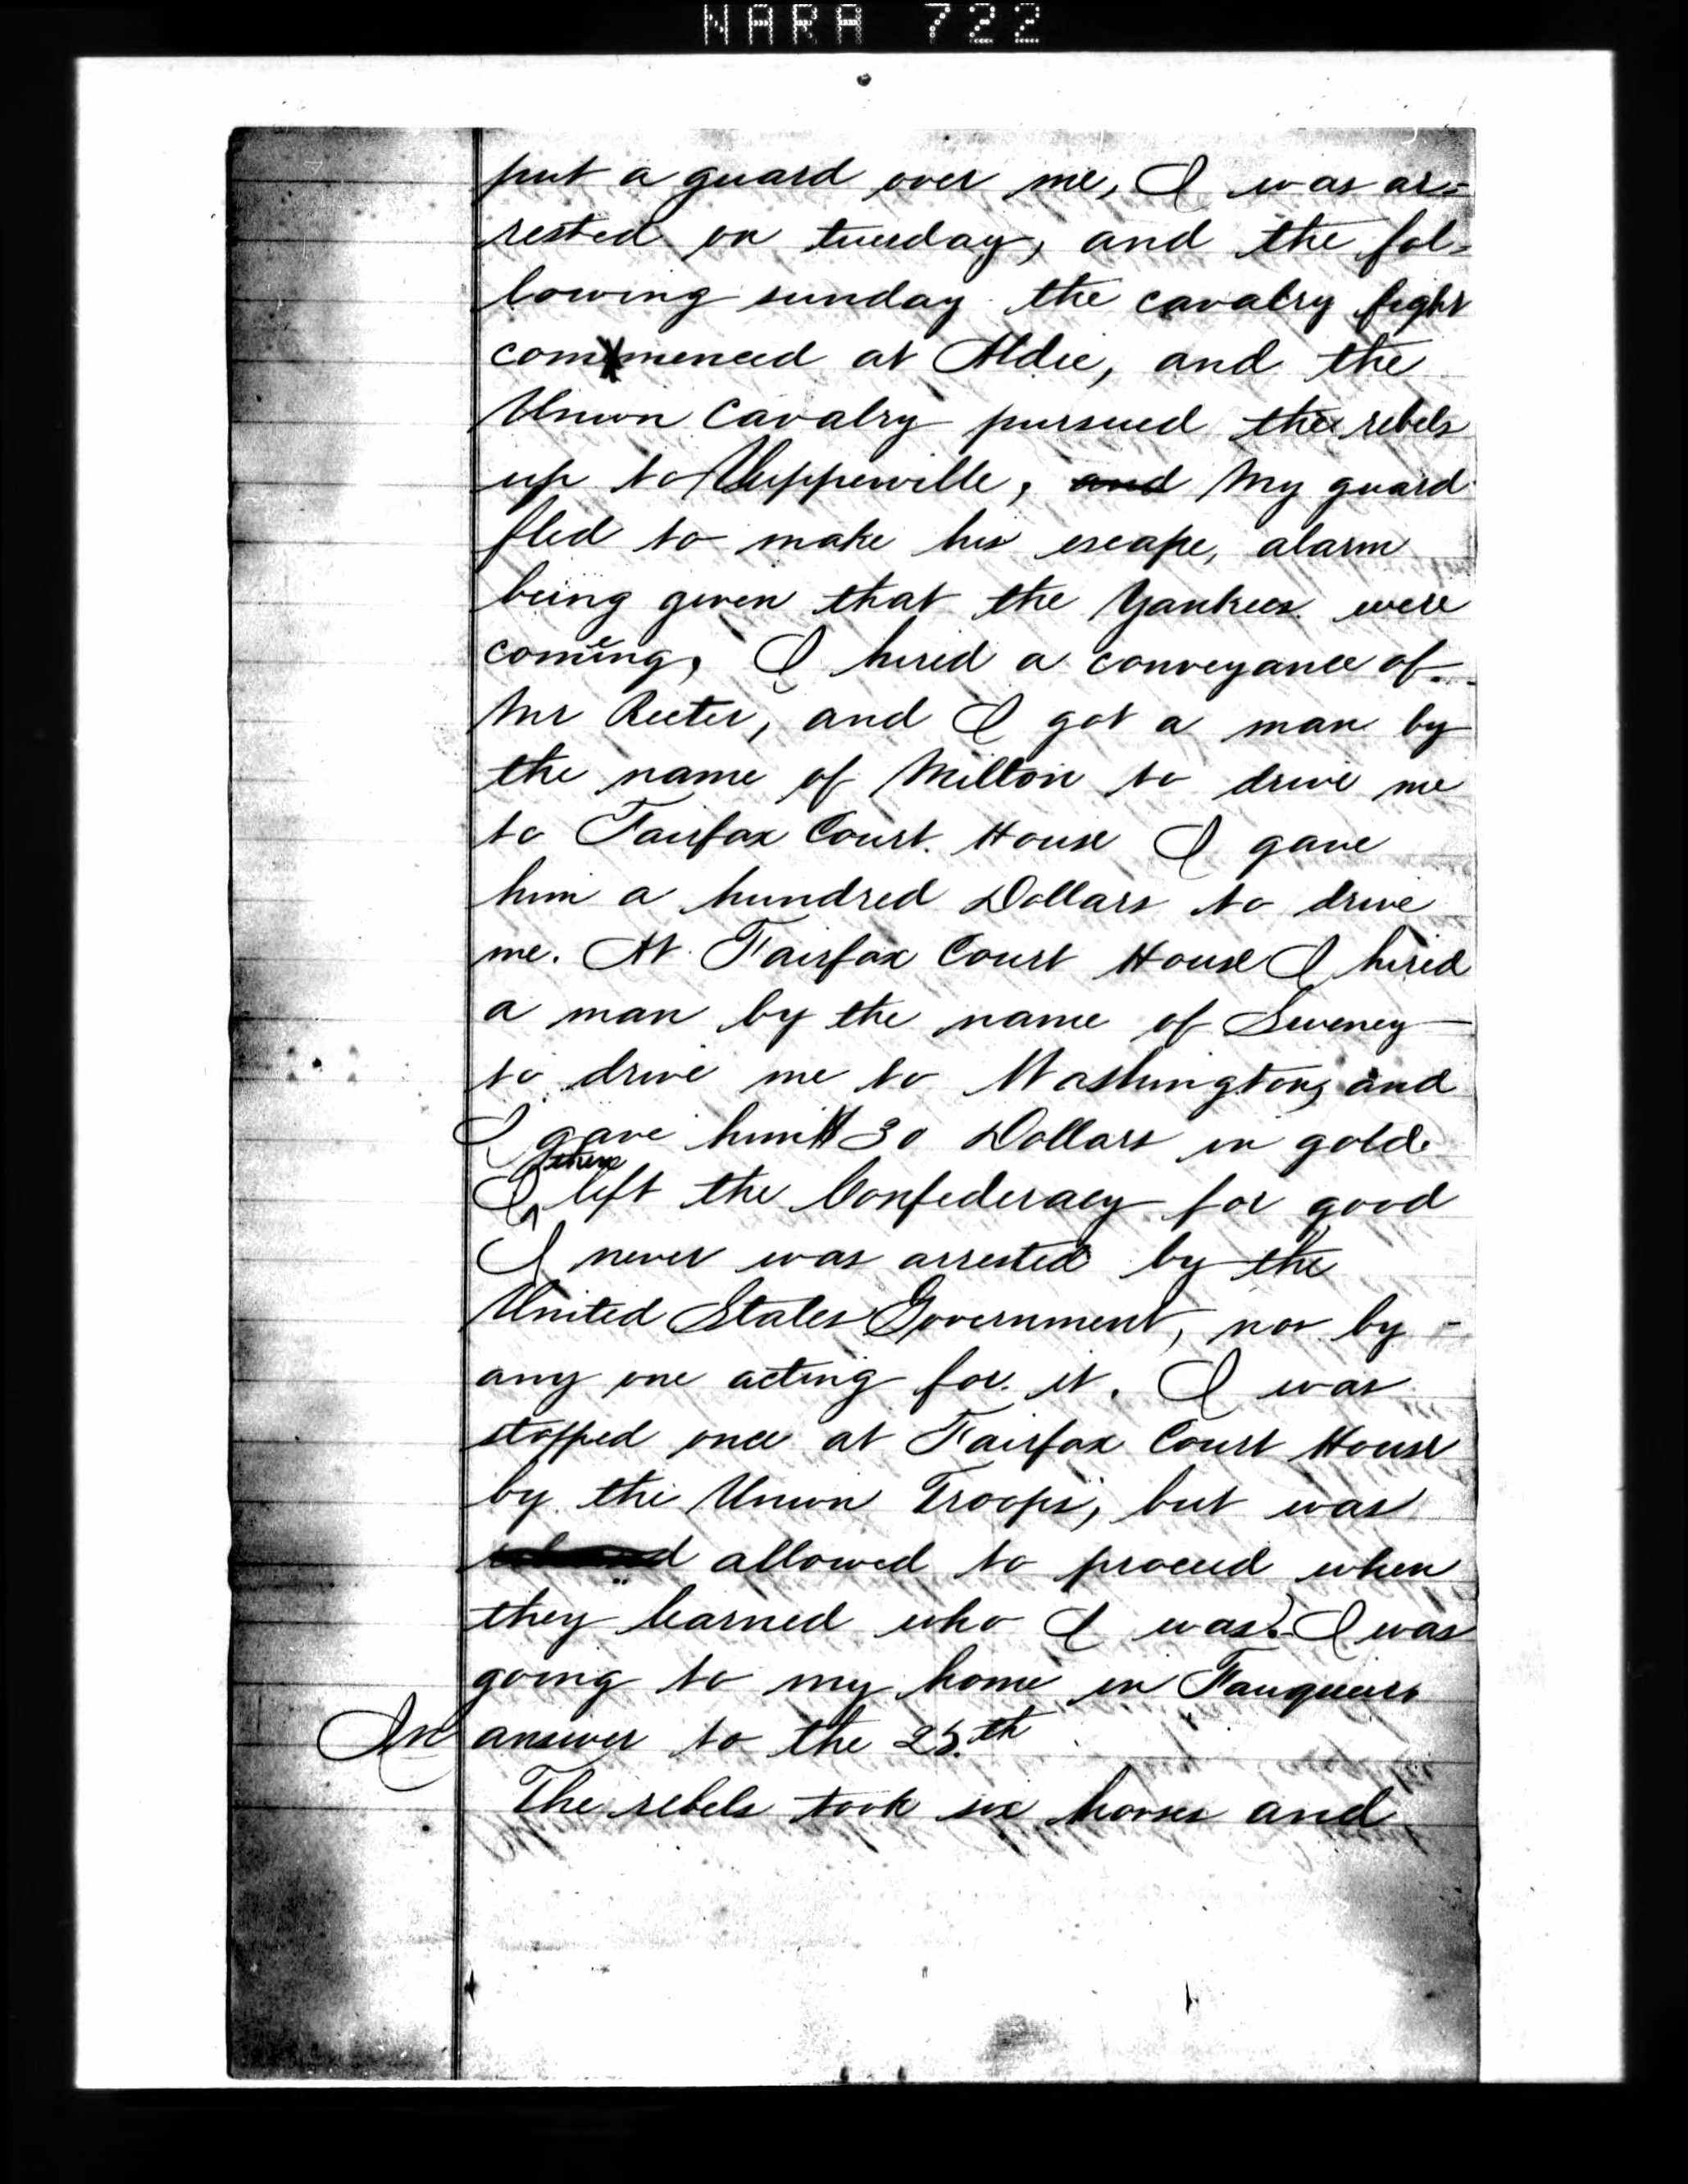 NARA 722
put a guard over me, I was ar=
rested on tuesday, and the fol=
lowing sunday the cavalry fight
commenced at Aldie, and the
Union Cavalry pursued the rebels
up to Upperville, and My guard
fled to make his escape, alarm
being given that the Yankees were
coming, I hired a conveyance of
Mr Reeter, and I got a man by
the name of Milton to drive me
to Fairfax Court House I gave
him a hundred Dollars to drive
me. At Fairfax Court House I hired
a man by the name of Sweney
to drive me to Washington, and
I gave him 30 Dollars in gold.
I then left the Confederacy for good
I never was arrested by the
United States Government, nor by
any one acting for it. I was
stopped once at Fairfax Court House
by the Union Troops, but was
allowed to proceed when
they learned who I was. I was
going to my home in Fauquier.
In answer to the 25.th
The rebels took six horses and